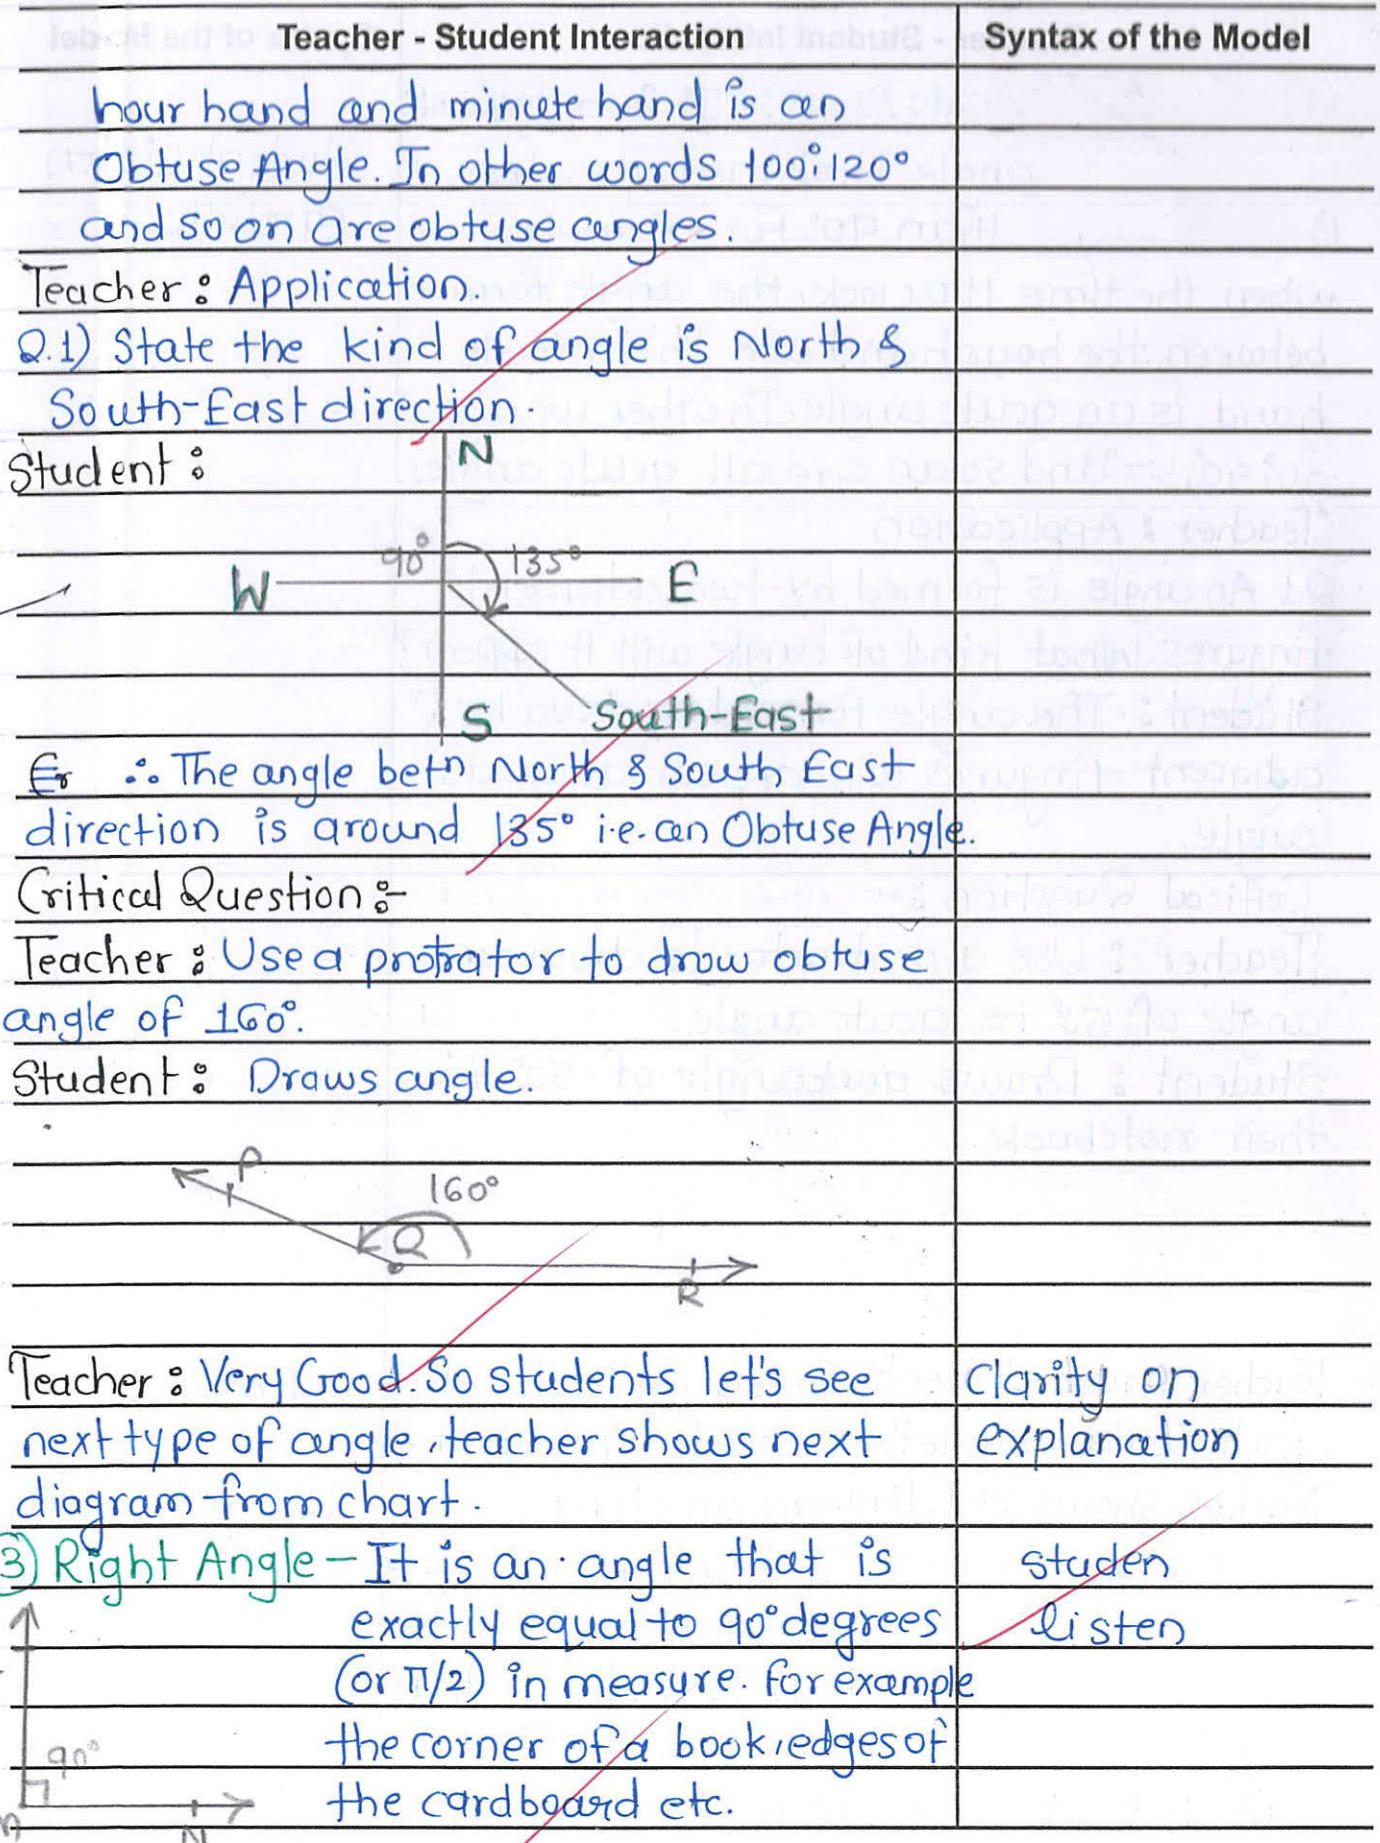 Teacher - Student Interaction
Syntax of the Model
hour hand and minute hand is an
Obtuse Angle. In other words 100°, 120°
and so on are obtuse angles.
Teacher : Application.
Q.1) State the kind of angle is North &
South-East direction.
Student :
N
90° 135°
W E
S South-East
∴ The angle betn North & South East
direction is around 135° i.e. an Obtuse Angle.
Critical Question :-
Teacher : Use a protrator to draw obtuse
angle of 160°.
Student : Draws angle.
P
160°
Q
R
Teacher : Very Good. So students let's see
next type of angle, teacher shows next
diagram from chart.
Clarity on
explanation
3) Right Angle - It is an angle that is
exactly equal to 90° degrees
(or π/2) in measure. For example
the corner of a book, edges of
the cardboard etc.
studen
listen
90°
N